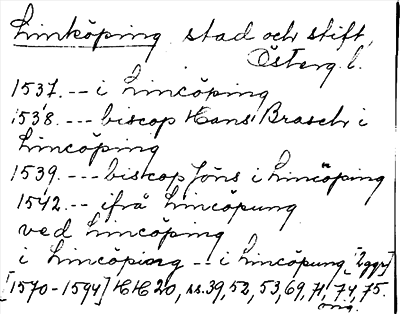 Linköping stad och stift,
Österg. l.
1537. -- i Lincöping
1538. --- biscop Hans Brasch i
Linköping
1539. --- biscop Jöns i Linöping
1542. -- ifrå Lincöpung
ved Lincöping
i Lincöping -- i Lincöpung [2ggr]
[1570-1594] HH 20, ss. 39, 52, 53, 69, 71, 74, 75.